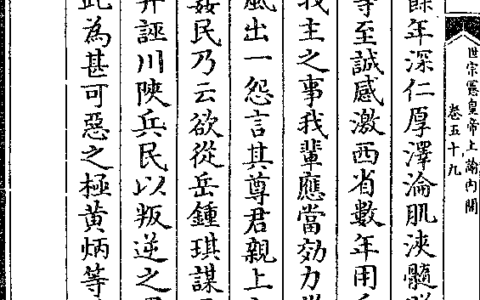 世宗憲皇帝上諭內閣
卷五十九
餘年深仁厚澤淪肌浹髓
等至誠感激西省數年用
我主之事我輩應當効力
風出一怨言其尊君親上
姦民乃云欲從岳鍾琪謀
并誣川陝兵民以叛逆之
此為甚可惡之極黃炳等